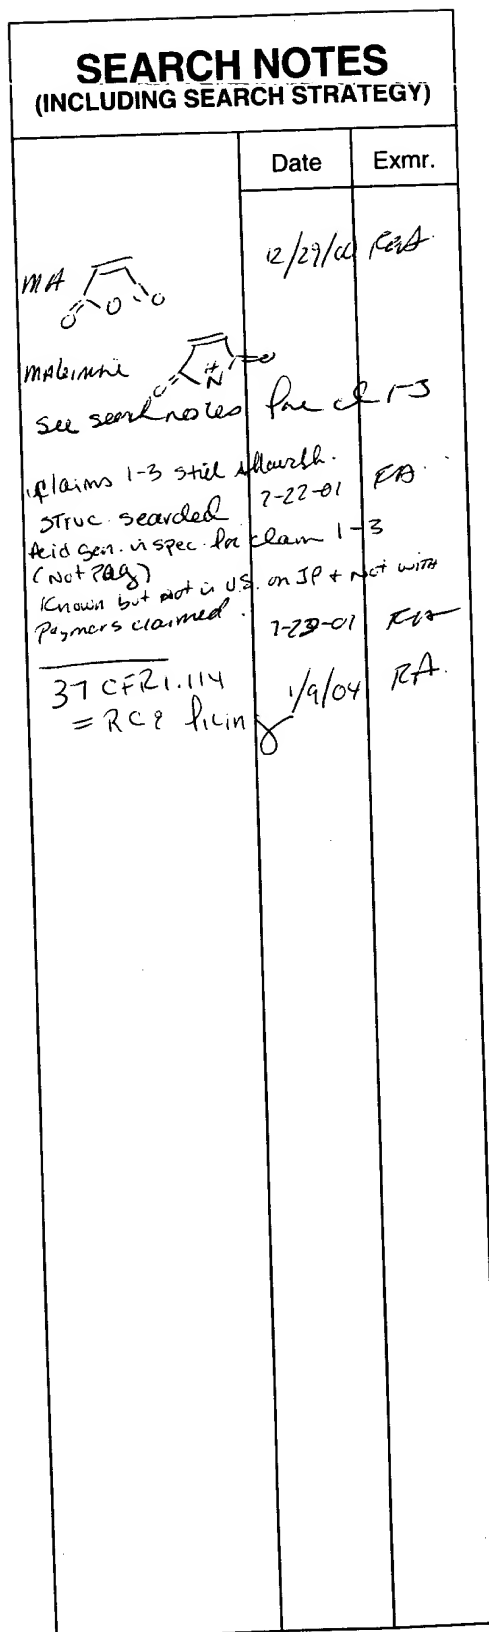 SEARCH NOTES
(INCLUDING SEARCH STRATEGY)
Date Exmr.
MA 12/29/00
O O O
N
see search notes for cl 1-3
claims 1-3 still
struc. searched 7-22-01
Acid Gen. in spec. for claim 1-3
(Not PAG)
Known but not in U.S. or JP + Not with
Polymers claimed. 7-23-01
37 CFR 1.114 1/9/04 RA.
= RCE filing